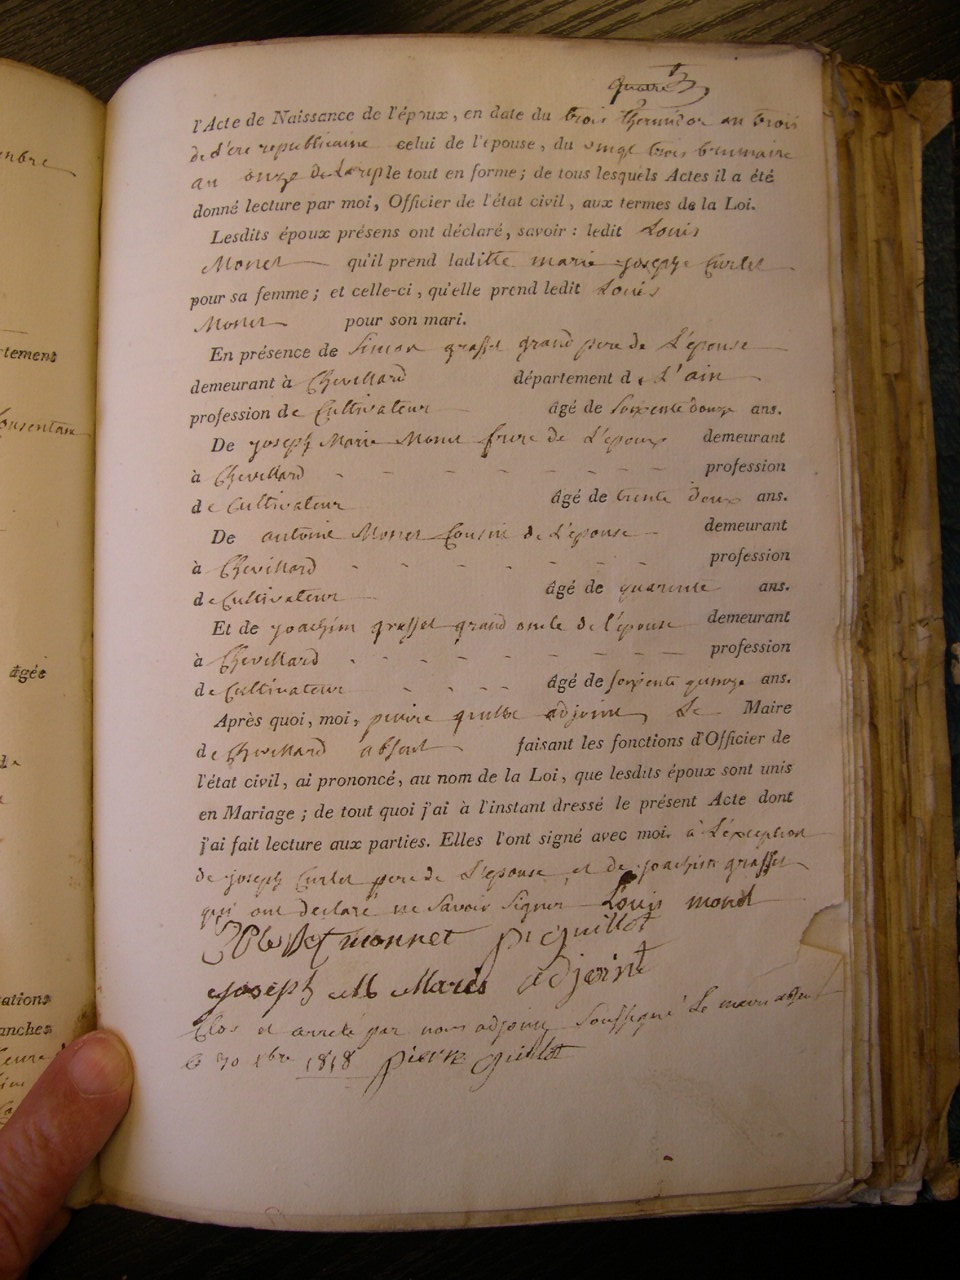 quatre
l'Acte de Naissance de l'époux, en date du trois thermidor an trois
de l'ere republicaine celui de l'épouse, du vingt trois brumaire
an onze de le tout en forme; de tous lesquels Actes il a été
donné lecture par moi, Officier de l'état civil, aux termes de la Loi.
Lesdits époux présens ont déclaré, savoir : ledit Louis
Monet qu'il prend laditte marie josephe Curlet
pour sa femme; et celle-ci, qu'elle prend ledit Louis
Monet pour son mari.
En présence de Simon grasset grand pere de L'épouse
demeurant à Chevillard département de L'ain
profession de Cultivateur âgé de soixente douze ans.
De joseph Marie Monet frere de L'époux demeurant
à Chevillard - - - - - - - - profession
de Cultivateur âgé de trente deux ans.
De antoine Monet Cousin de L'épouse demeurant
à Chevillard - - - - - - - profession
de Cultivateur âgé de quarente ans.
Et de joachim grasset grand oncle de l'épouse demeurant
à Chevillard - - - - - - - profession
de Cultivateur - - - - âgé de soixente quinze ans.
Après quoi, moi, pierre guillot adjoint, Le Maire
de Chevillard absent faisant les fonctions d'Officier de
l'état civil, ai prononcé, au nom de la Loi, que lesdits époux sont unis
en Mariage; de tout quoi j'ai à l'instant dressé le présent Acte dont
j'ai fait lecture aux parties. Elles l'ont signé avec moi. à L'exception
de joseph Curlet pere de L'epouse et de joachim grasset
qui ont declaré ne Savoir Signer Louis monet
monnet pre guillot
joseph adjoint
Clos et arreté par nous adjoint Soussigné Le maire absent
le 30 xbre 1818 pierre guillot
enbre
tement
consentan
âgés
ations
anches